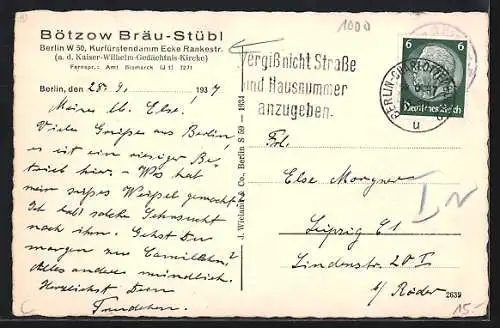 Bötzow Bräu-Stübl
Berlin W 50, Kurfürstendamm Ecke Rankestr.
(a. d. Kaiser-Wilhelm-Gedächtnis-Kirche)
Fernspr.: Amt Bismarck (J 1) 7271
Berlin, den 28. 9. 1937
Meine lb. Else!
Viele Grüße aus Berlin,
es ist ein riesiger Be-
trieb hier – Was hat
mein süßes Weifsel gemacht?
Ich hab solche Sehnsucht
nach ihm. Gehst Du
morgen zu Camillchen?
Alles andere mündlich.
Herzlichst Dein
J. Wieland & Co., Berlin S 59 – 1934
1000
Vergiß nicht Straße
und Hausnummer
anzugeben.
BERLIN-CHARLOTTENBURG
u
6 6
Deutsches Reich
Frl.
Else Morgner
Leipzig C 1
Lindenstr. 20 I
b/ Röder
2639
15.-